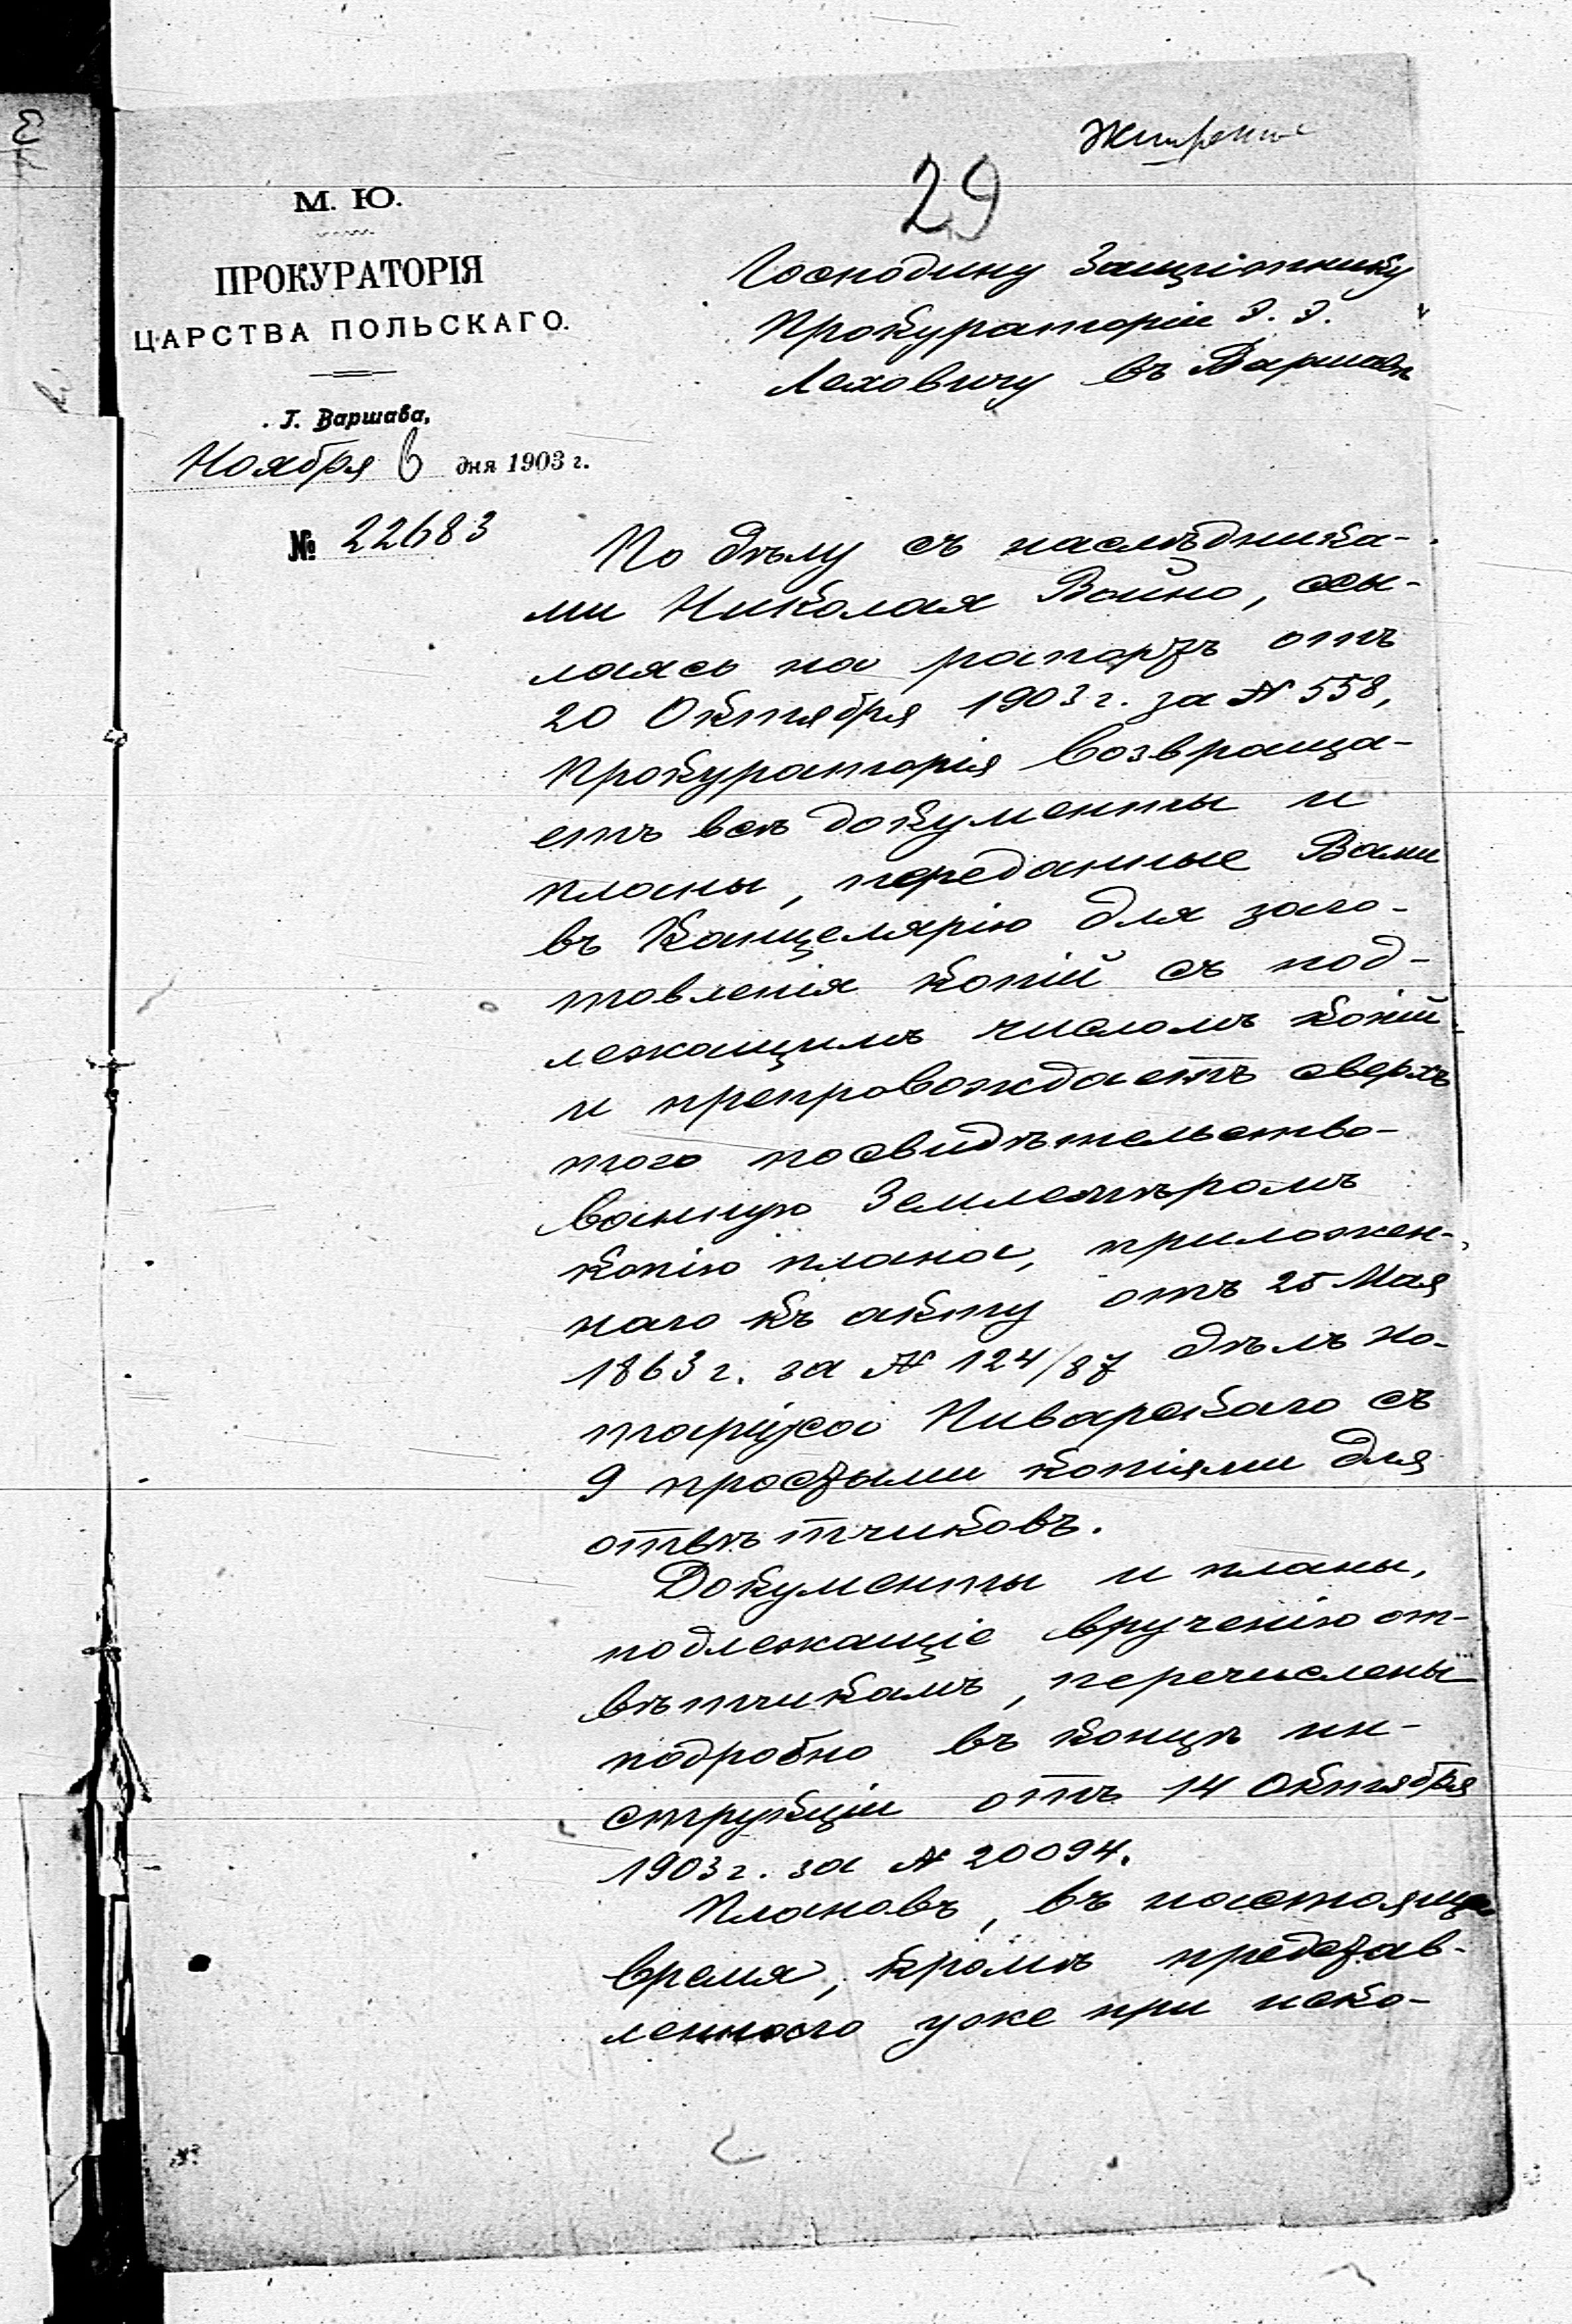 29
М. Ю.
ПРОКУРАТОРІЯ
ЦАРСТВА ПОЛЬСКАГО.
Г. Варшава,
Ноября 6 дня 1903 г.
№ 22683
Господину Защитнику
Прокураторіи Э. Э.
Леховичу въ Варшавѣ
По дѣлу съ наслѣдника-
ми Николая Войно, ссы-
лаясь на рапортъ отъ
20 Октября 1903 г. за № 558,
Прокураторія возвраща-
етъ всѣ документы и
планы, переданные Вами
въ Канцелярію для заго-
товленія копій съ под-
лежащимъ числомъ копій
и препровождаетъ сверхъ
того посвидѣтельство-
ванную Землемѣромъ
копію плана, приложен-
наго къ акту отъ 25 Мая
1863 г. за № 124/87 дѣлъ Но-
таріуса Пиварскаго съ
9 простыми копіями для
отвѣтчиковъ.
Документы и планы,
подлежащіе врученію от-
вѣтчикамъ, перечислены
подробно въ концѣ ин-
струкціи отъ 14 Октября
1903 г. за № 20094.
Плановъ, въ настояще
время, кромѣ представ-
леннаго уже при иско-